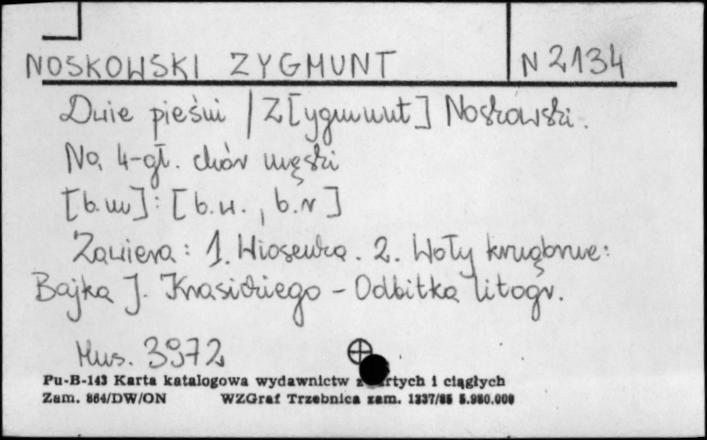 NOSKOWSKI ZYGMUNT N 2134
Dwie pieśni / Z[ygmunt] Noskowski.
Na 4-gł. chór męski
[b.m]: [b.w., b.r]
Zawiera: 1. Wiosenka. 2. Woły krnąbrne:
Bajka J. Krasickiego - Odbitka litogr.
Mus. 3972
Pu-B-143 Karta katalogowa wydawnictw i ciągłych
Zam. 864/DW/ON WZGraf Trzebnica zam. 1337/85 5.980.000